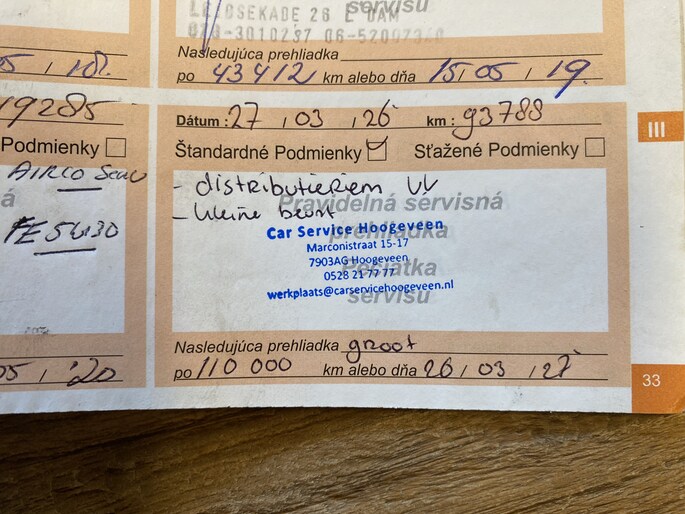 servisu
LEJCSEKADE 26 E DAM
Nasledujúca prehliadka
po 43412 km alebo dňa 15, 05, 19.
05, 18.
19285
Podmienky
AIRCO
5W30
05, '20
Dátum: 27, 03, 26 km: 93788
Štandardné Podmienky Sťažené Podmienky
- distributieriem VV
- kleine beurt
Pravidelná servisná
prehliadka
Pečiatka
servisu
Car Service Hoogeveen
Marconistraat 15-17
7903AG Hoogeveen
0528 21 77 77
werkplaats@carservicehoogeveen.nl
Nasledujúca prehliadka groot
po 110 000 km alebo dňa 26, 03, 27
III
33